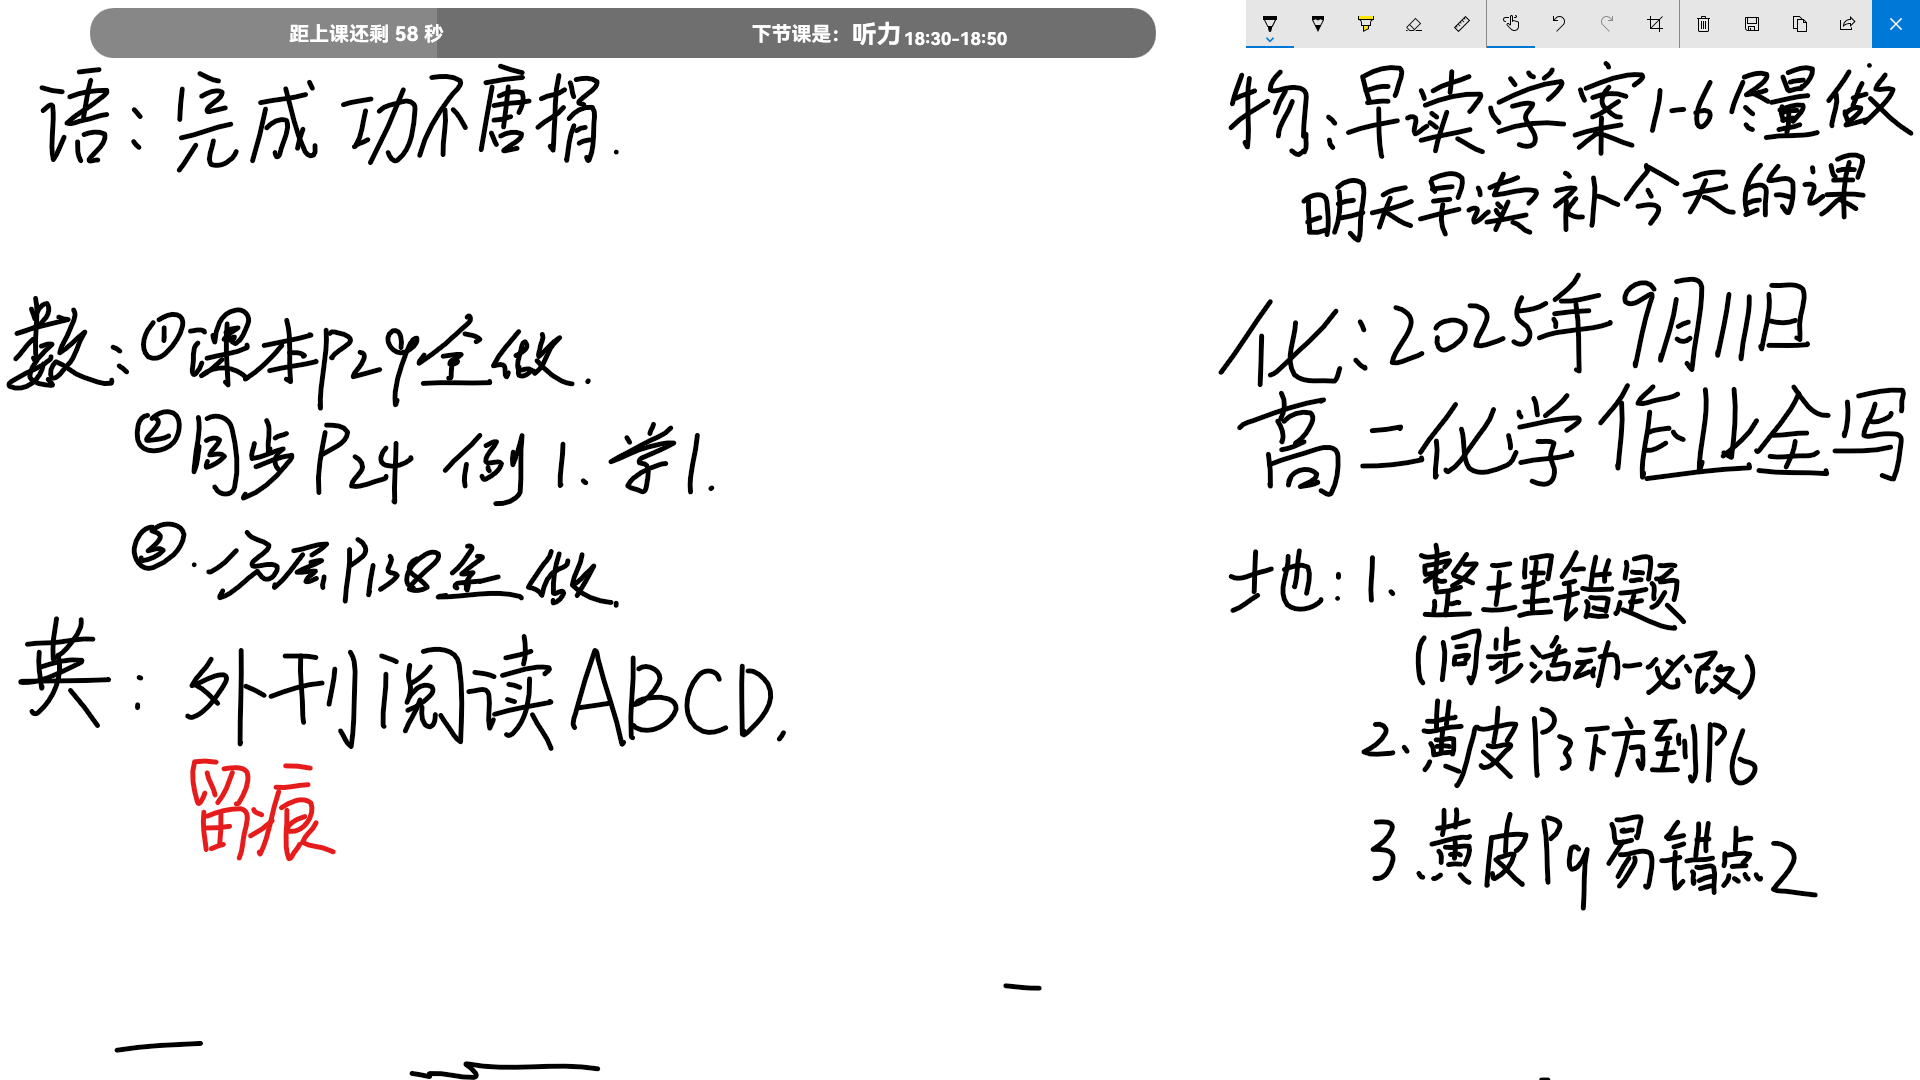 距上课还剩 58 秒
下节课是：听力 18:30-18:50
语：完成功不唐捐.
数：①课本P29全做.
②同步P24 例1、学1.
③.分层P138全做.
英：外刊阅读ABCD.
留痕
物：早读学案1-6尽量做
明天早读补今天的课
化：2025年9月11日
高二化学作业全写
地：1.整理错题
(同步活动一必改)
2.黄皮P3下方到P6
3.黄皮P9易错点2